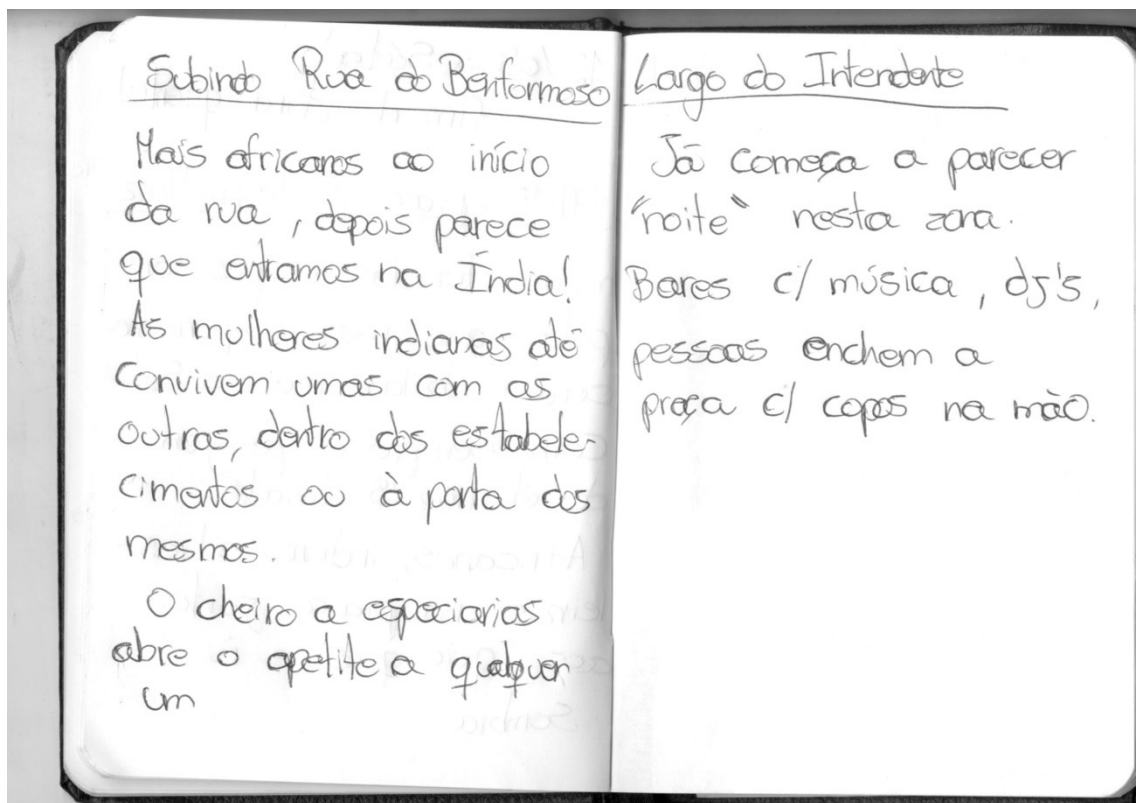 Subindo Rua do Benformoso
Mais africanos ao início
da rua, depois parece
que entramos na Índia!
As mulheres indianas até
convivem umas com as
outras, dentro dos estabele-
cimentos ou à porta dos
mesmos.
O cheiro a especiarias
abre o apetite a qualquer
um
Largo do Intendente
Já começa a parecer
"noite" nesta zona.
Bares c/ música, dj's,
pessoas enchem a
praça c/ copos na mão.